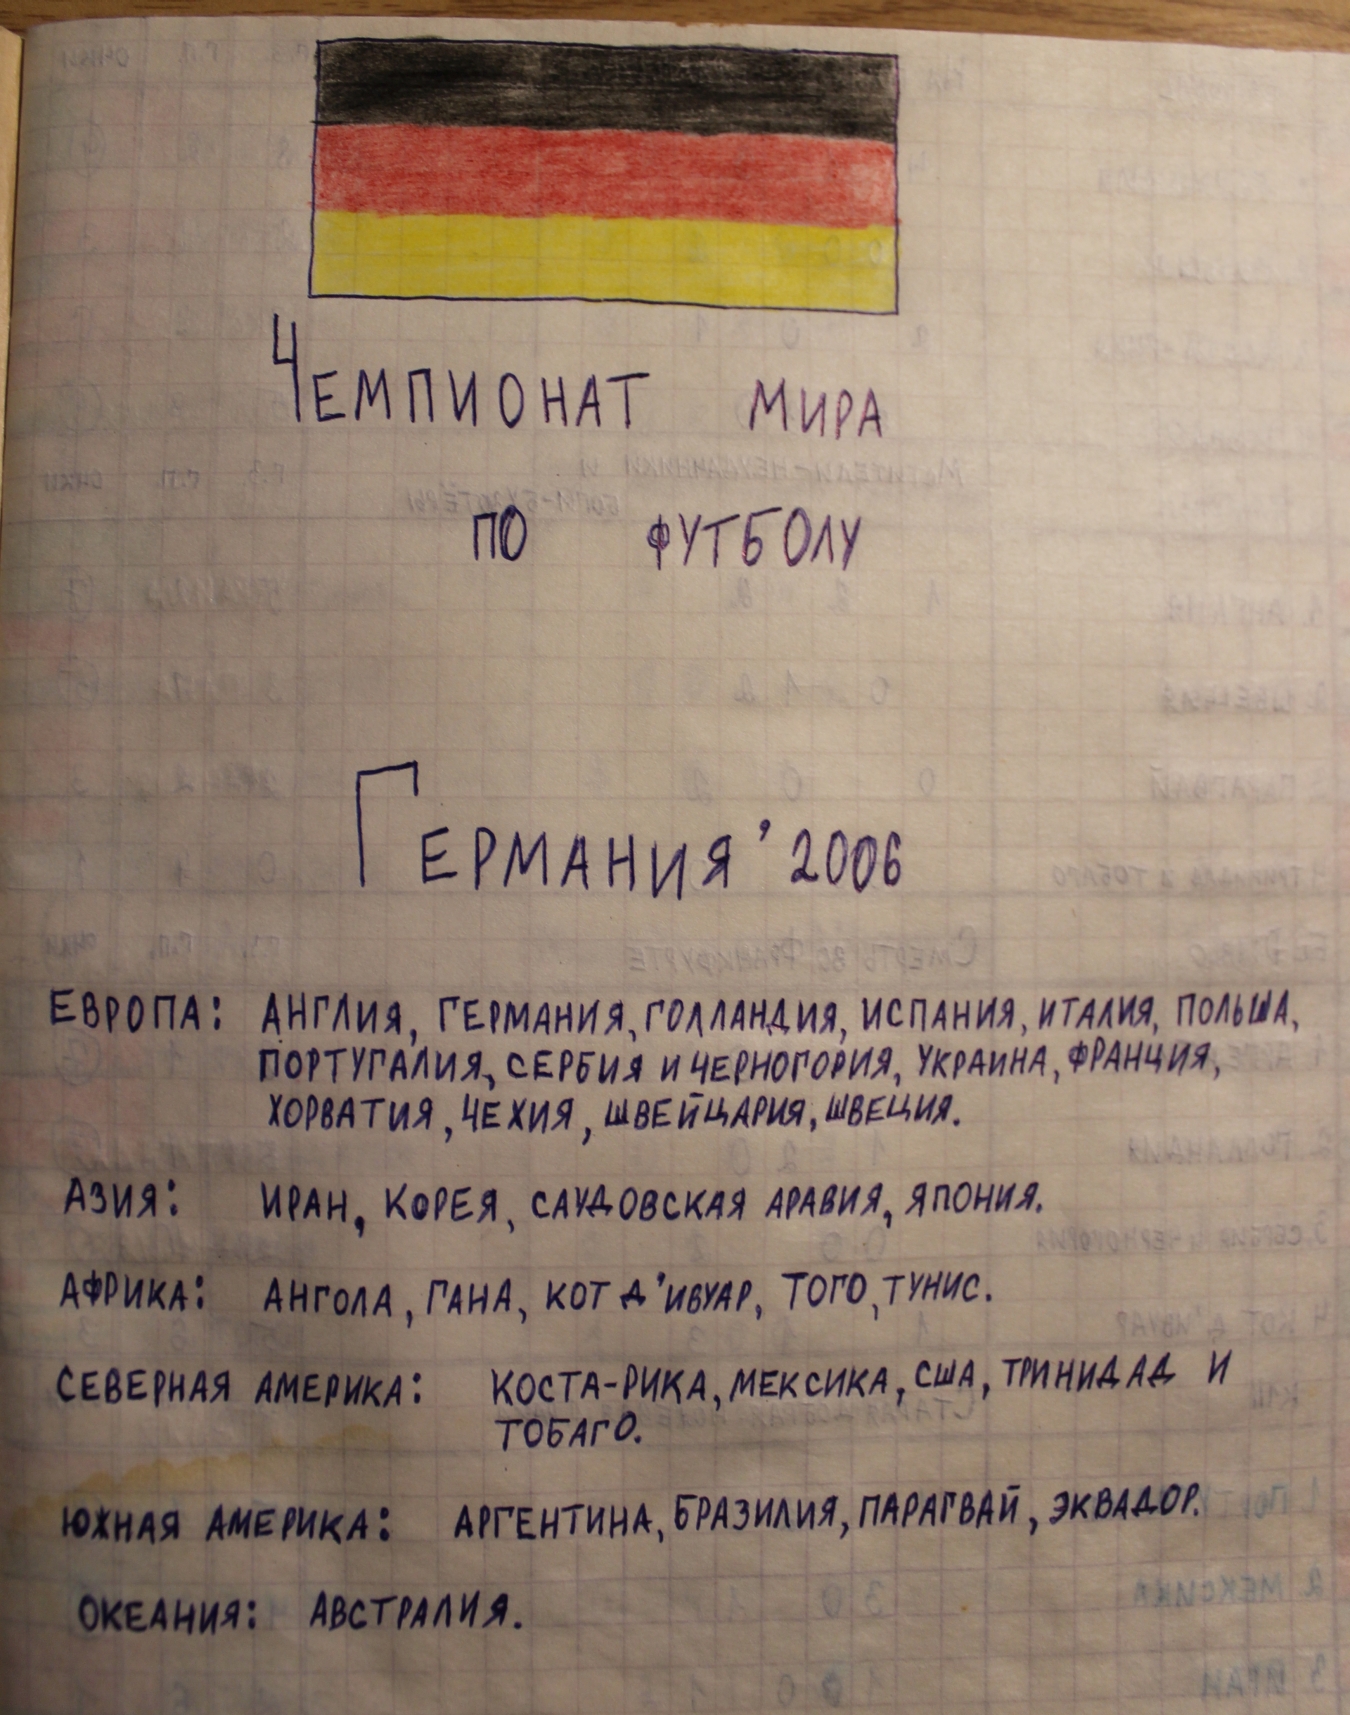 Чемпионат мира
по футболу
Германия'2006
ЕВРОПА: АНГЛИЯ, ГЕРМАНИЯ, ГОЛЛАНДИЯ, ИСПАНИЯ, ИТАЛИЯ, ПОЛЬША,
ПОРТУГАЛИЯ, СЕРБИЯ И ЧЕРНОГОРИЯ, УКРАИНА, ФРАНЦИЯ,
ХОРВАТИЯ, ЧЕХИЯ, ШВЕЙЦАРИЯ, ШВЕЦИЯ.
АЗИЯ: ИРАН, КОРЕЯ, САУДОВСКАЯ АРАВИЯ, ЯПОНИЯ.
АФРИКА: АНГОЛА, ГАНА, КОТ Д'ИВУАР, ТОГО, ТУНИС.
СЕВЕРНАЯ АМЕРИКА: КОСТА-РИКА, МЕКСИКА, США, ТРИНИДАД И
ТОБАГО.
ЮЖНАЯ АМЕРИКА: АРГЕНТИНА, БРАЗИЛИЯ, ПАРАГВАЙ, ЭКВАДОР.
ОКЕАНИЯ: АВСТРАЛИЯ.